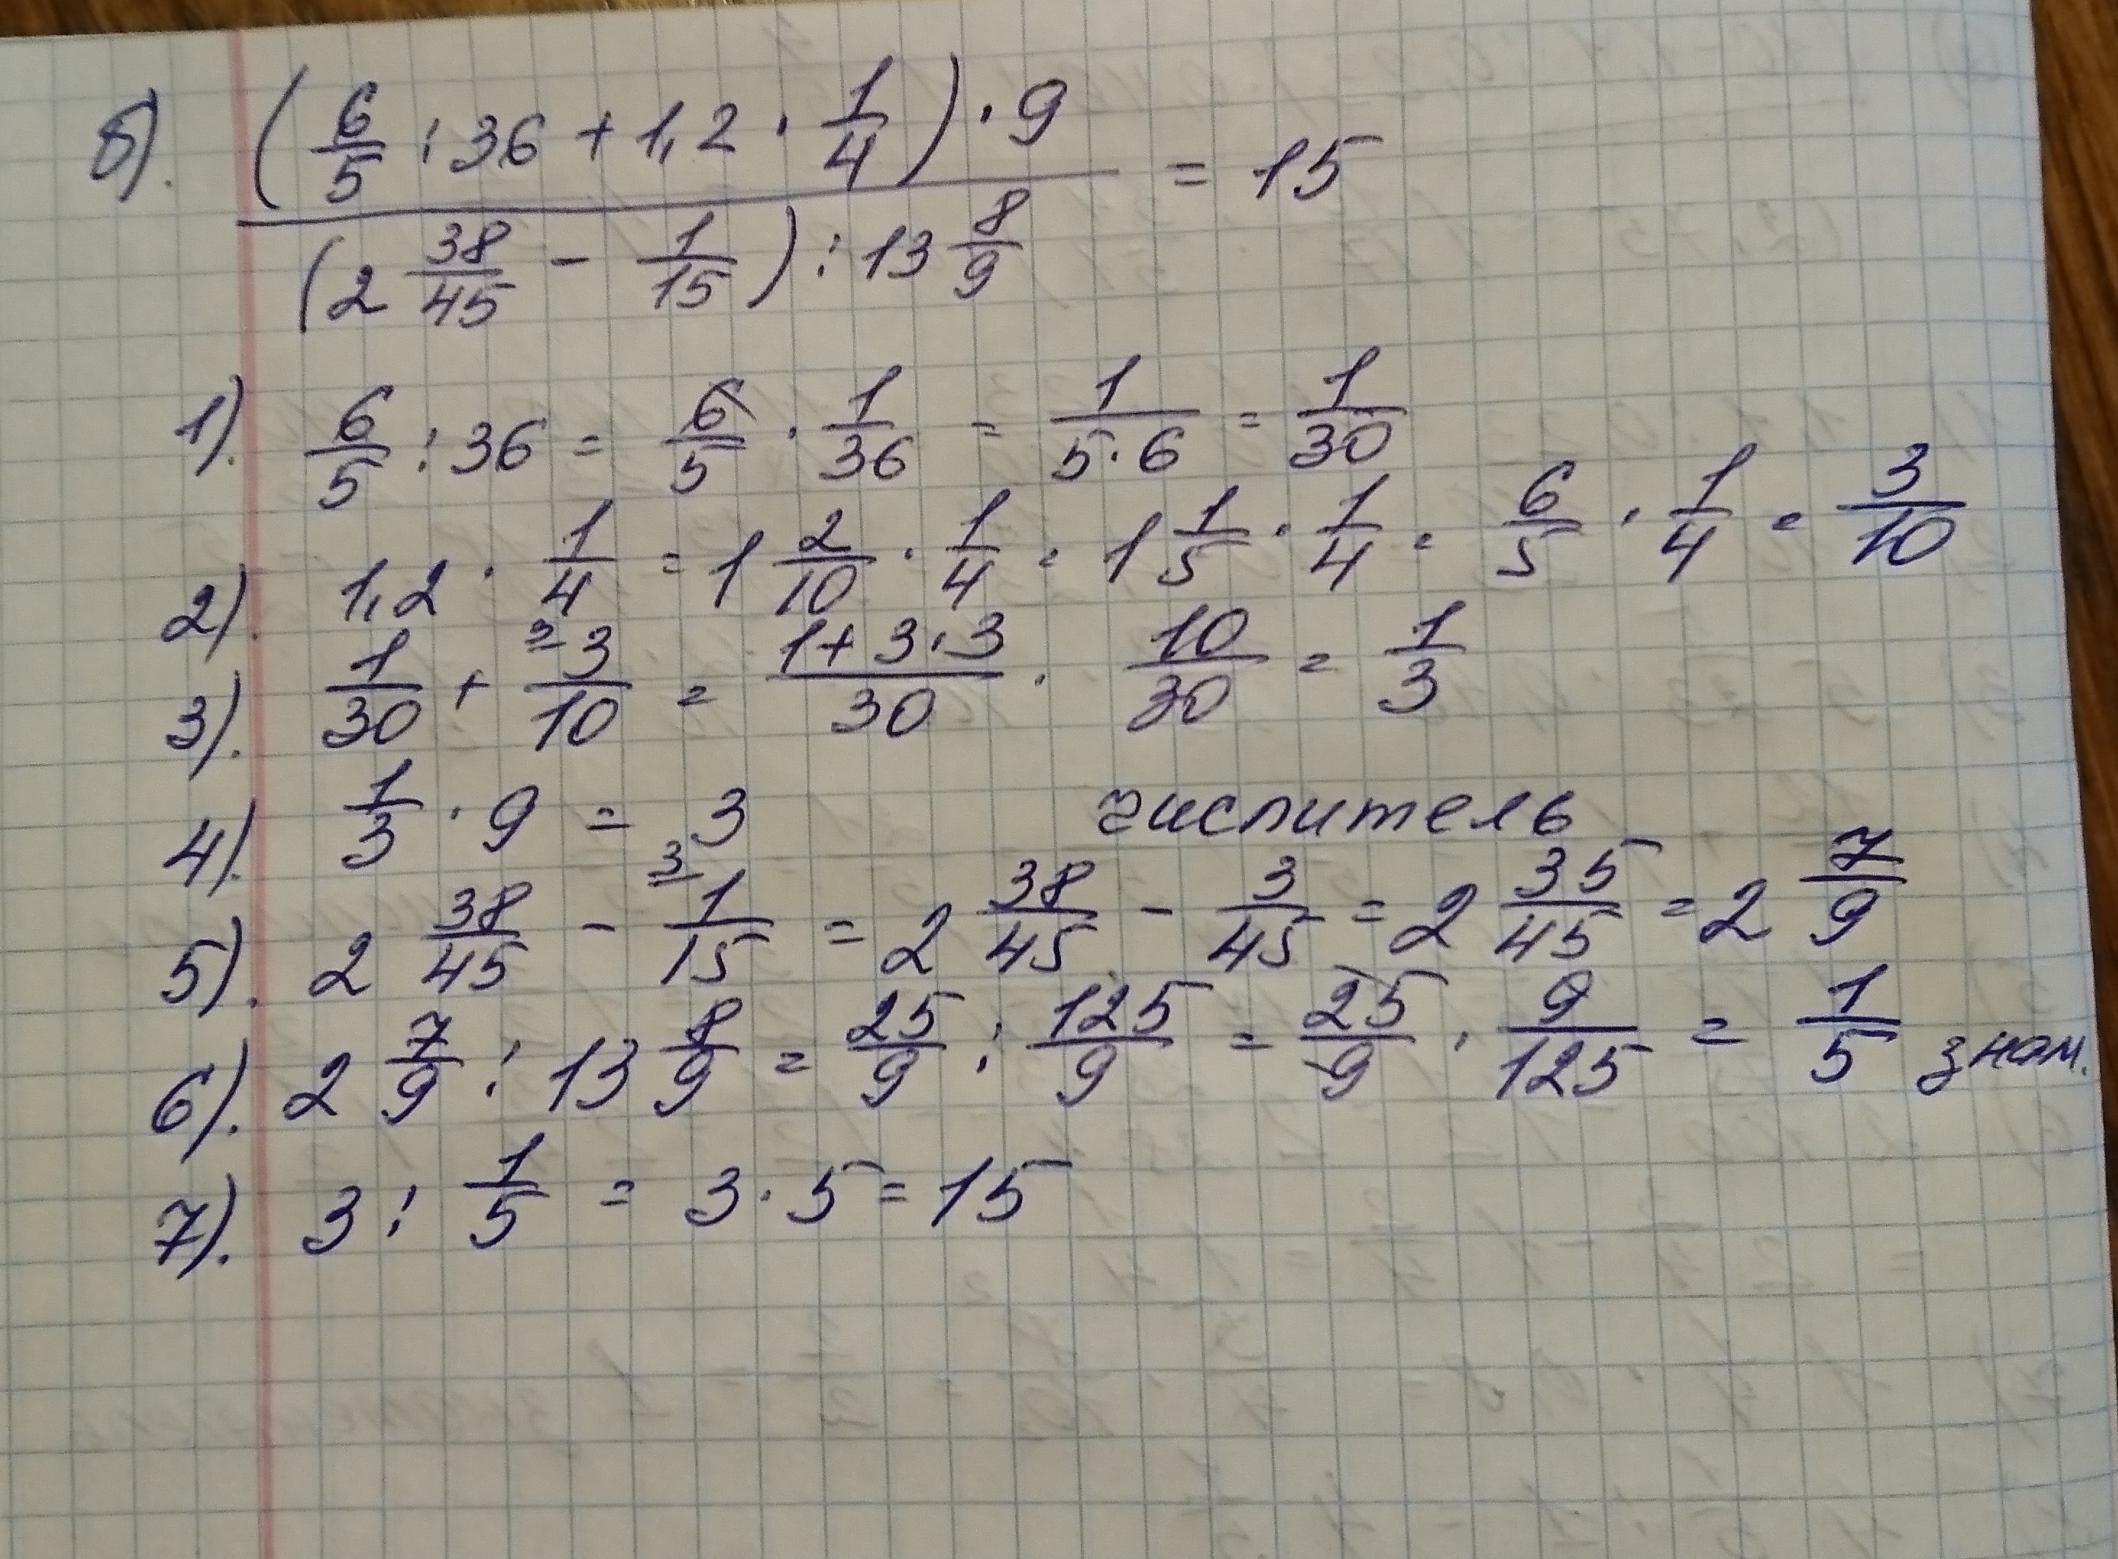 б). (6/5 : 36 + 1,2 · 1/4) · 9 / (2 38/45 - 1/15) : 13 8/9 = 15
1). 6/5 : 36 = 6/5 · 1/36 = 1/(5·6) = 1/30
2). 1,2 · 1/4 = 1 2/10 · 1/4 = 1 1/5 · 1/4 = 6/5 · 1/4 = 3/10
3). 1/30 + ³3/10 = (1+3·3)/30 = 10/30 = 1/3
4). 1/3 · 9 = 3 числитель
5). 2 38/45 - ³1/15 = 2 38/45 - 3/45 = 2 35/45 = 2 7/9
6). 2 7/9 : 13 8/9 = 25/9 : 125/9 = 25/9 · 9/125 = 1/5 знам.
7). 3 : 1/5 = 3 · 5 = 15